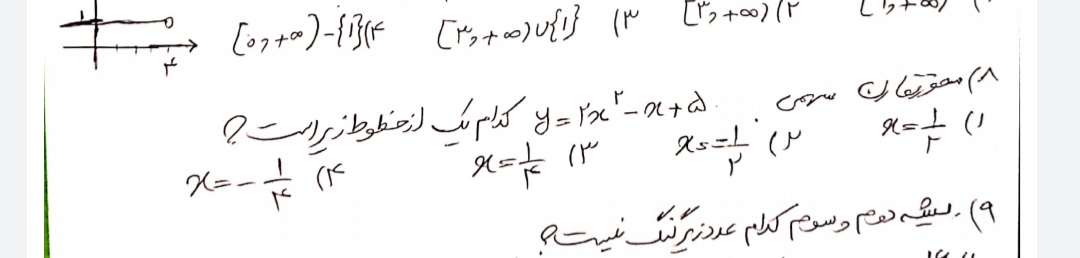 ۴
[۱, +∞) (۱ [۳, +∞) (۲ [۳, +∞) ∪ {۱} (۳ [۰, +∞) − {۱} (۴
۸) محور تقارن سهمی y = ۲x² − x + ۵ کدام یک از خطوط زیر است؟
۱) x = ۱/۲ ۲) x = −۱/۲ ۳) x = ۱/۴ ۴) x = −۱/۴
۹) ریشه دوم و سوم کدام عدد زیر گنگ نیست؟